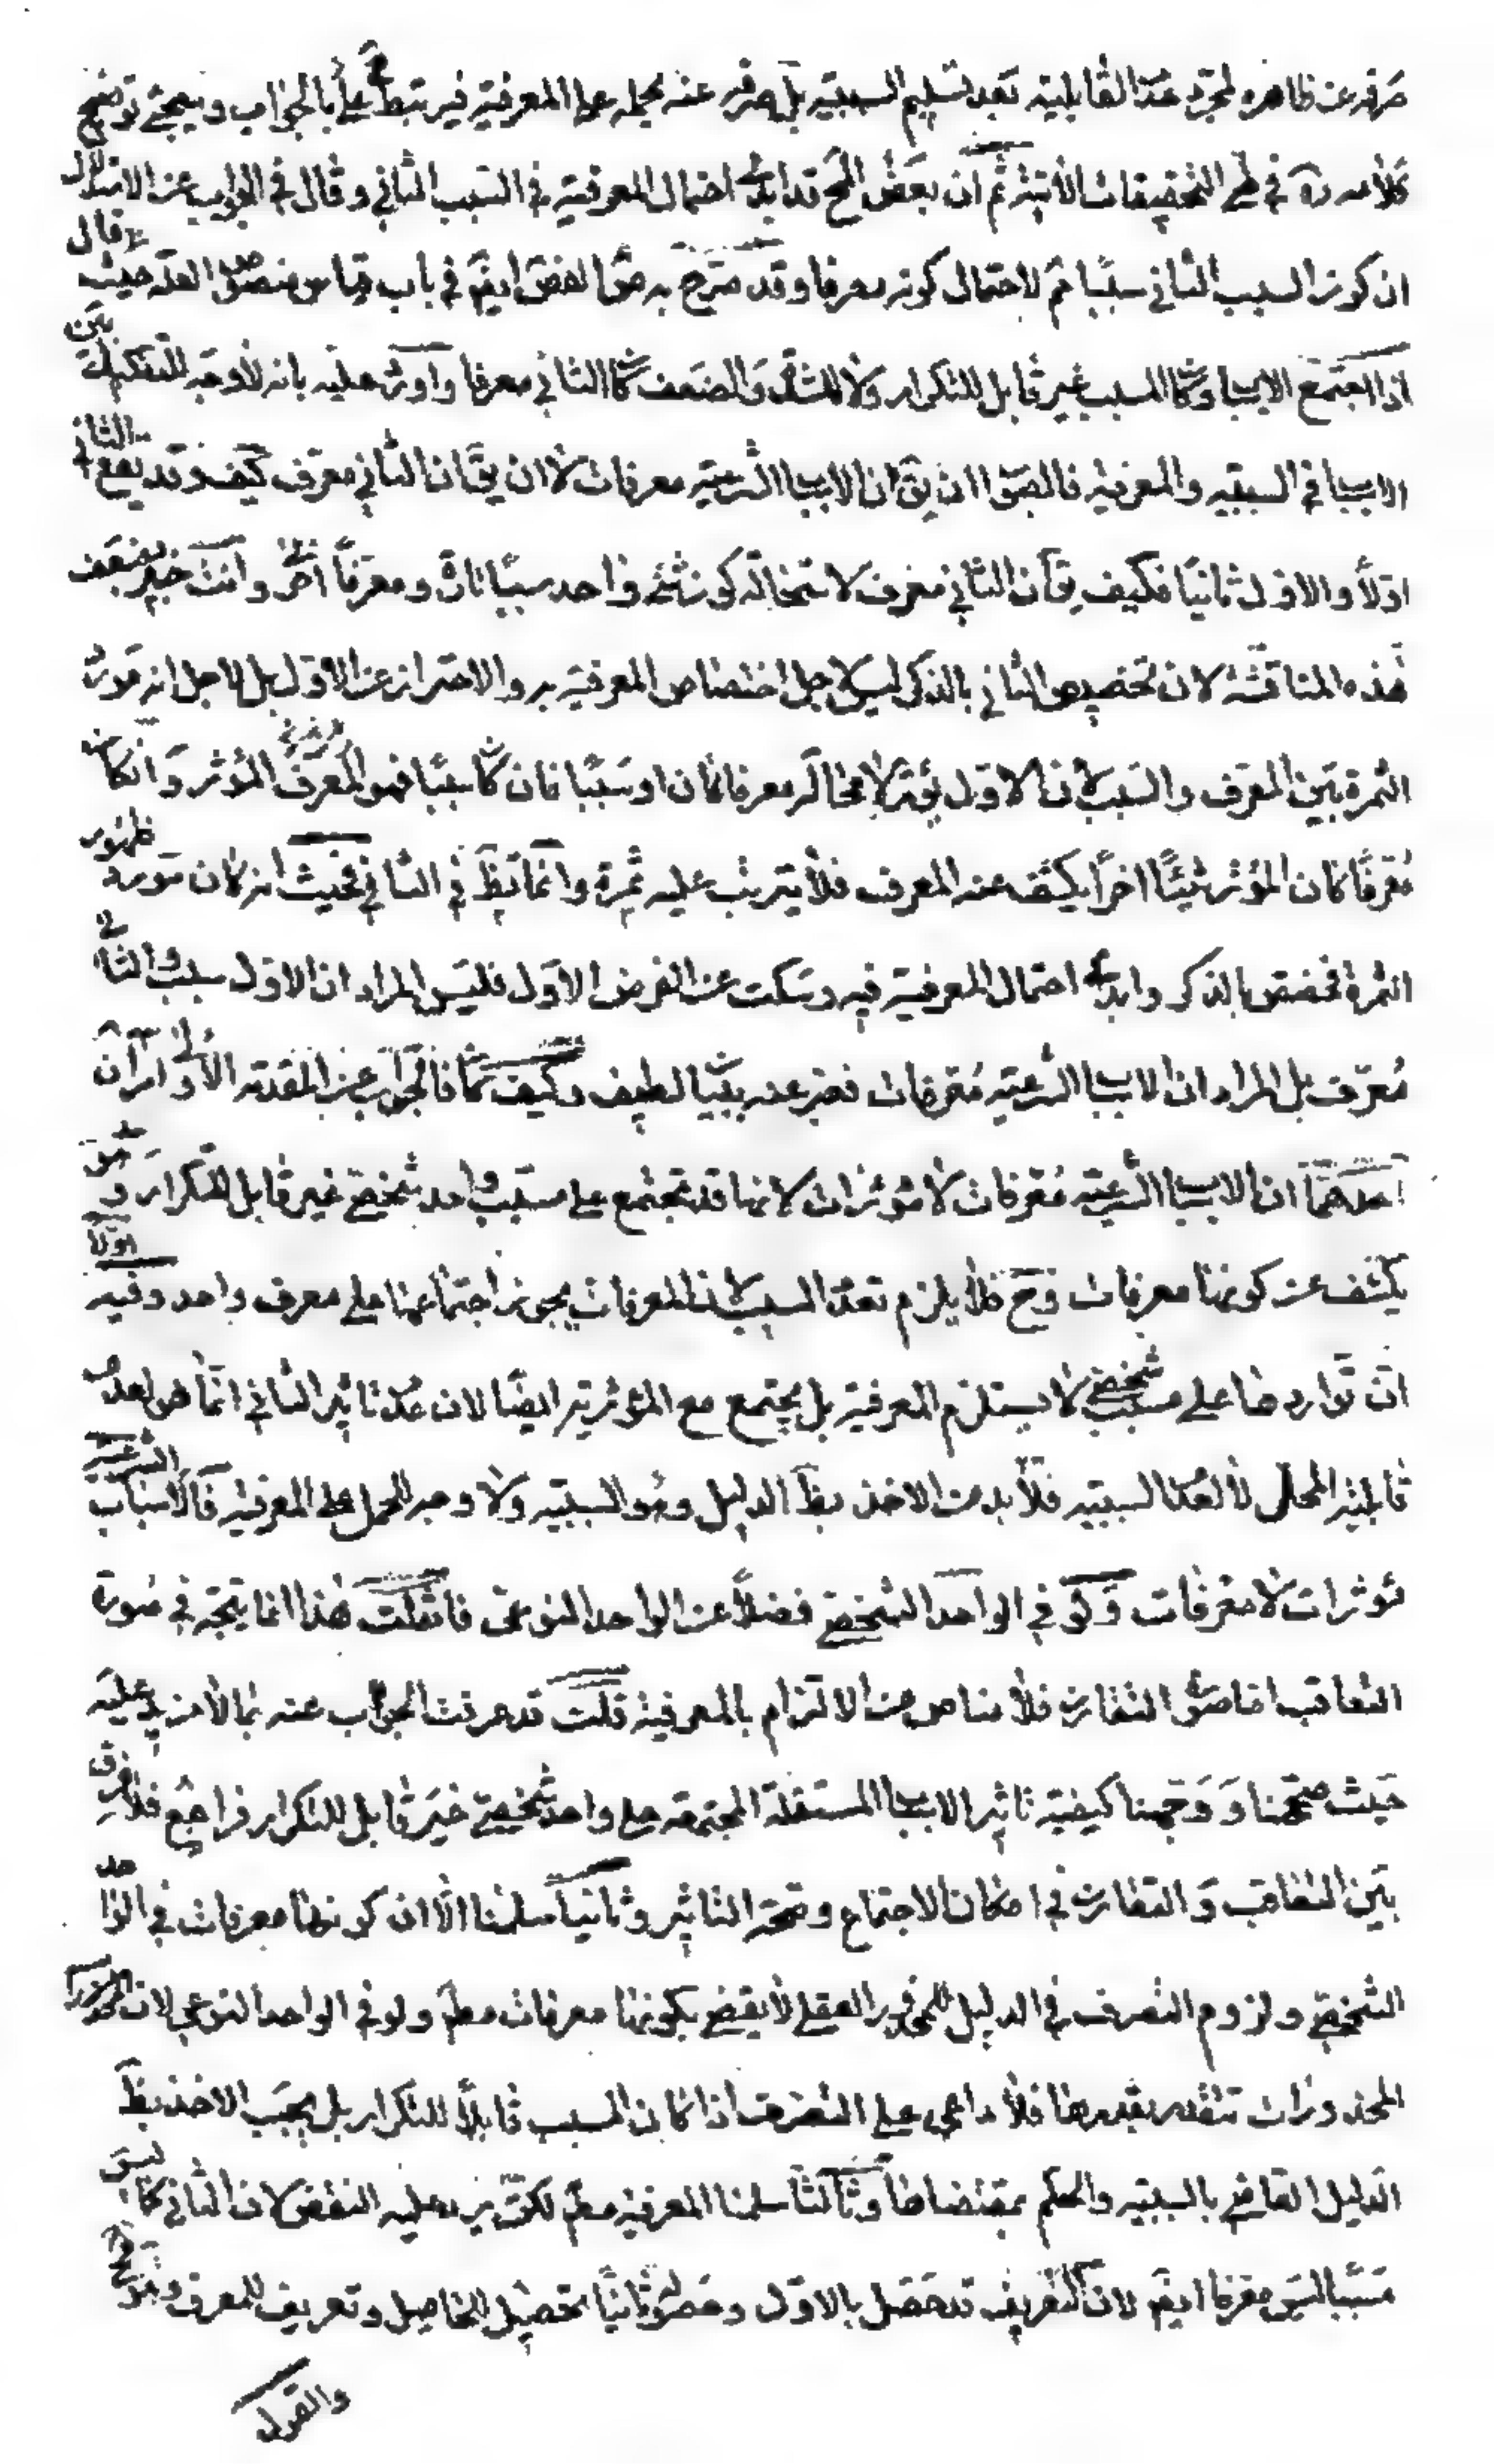 صرفه عن ظاهره لمجرد عدم القابلية بعد تسليم السببية بل صرفه عنه يحمله على المعرفية فيرتبط ح بالجواب وسيجئ توضيح
كلامه ره في طي التحقيقات الآتية ثم ان بعض المح قد ابدء احتمال المعرفية في السبب الثاني وقال في الجواب عن الاستدلال
ان كون السبب الثاني سببا ثم لاحتمال كونه معرفا وقد صرح به ايضم في باب قياس منصوص العلة حيث قال
اذا اجتمع الاسبا وكا المسبب غير قابل للتكرار ولا للشدة والضعف كا الثاني معرفا واورد عليه بانه لا وجه للتفكيك بين
الاسبا في السببيه والمعرفيه فالصوا ان يق ان الاسبا الشرعيه معرفات لا ان يق ان الثاني معرف كيف وقد يقع الثاني
اولا والاول ثانيا فكيف يق ان الثاني معرف لاستحالة كون شئ واحد سببا تارة ومعرفا اخرى وانت خبير بضعف
هذه المناقشة لان تخصيص الثاني بالذكر ليس لاجل اختصاص المعرفية به والاحتراز عن الاول بل لاجل انه مورد
الثمرة بين المعرف والسبب لان الاول يؤثر لا محالة معرفا كان او سببا فان كا سببا فهو المعرف المؤثر وان كا
معرفا كان المؤثر شيئا اخر يكشف عنه المعرف فلا يترتب عليه ثمرة وانما تظ في الثاني فحيث انه كان مورد ظهور
الثمرة فخصص بالذكر وابدء احتمال المعرفية فيه وسكت عن الفرض الاول فليس المراد ان الاول سبب والثاني
معرف بل المراد ان الاسبا الشرعيه معرفات فعبر عنه ببيا لطيف وكيف كا فالجواب عن المقدمة الاولى امران
احدهما ان الاسبا الشرعيه معرفات لا مؤثرات لانها قد تجتمع على مسبب واحد شخصي غير قابل للتكرار وهو
يكشف عن كونها معرفات وح فلا يلزم تعدد المسبب لان المعرفات يجوز اجتماعها على معرف واحد وفيه اولا
ان تواردها على مسبب شخصي لا يستلزم المعرفية بل يجتمع مع المؤثرية ايضا لان عدم تاثير الثاني انما هو لعدم
قابلية المحل لا لعدم السببيه فلا بد من الاخذ بظ الدليل وهو السببيه ولا وجه للحمل على المعرفية فالاسباب الشرعية
مؤثرات لا معرفات ولو في الواحد الشخصي فضلا عن الواحد النوعى فان قلت هذا انما يتجه في صورة
التعاقب اما صورة التقارن فلا مناص من الالتزام بالمعرفية قلت قد عرفت الجواب عنه بما لا مزيد عليه
حيث صححنا ووجهنا كيفية تاثير الاسبا المستقلة المجتمعة على واحد شخصي غير قابل للتكرار فراجع فلا فرق
بين التعاقب والتقارن في امكان الاجتماع وصحة التاثير وثانيا سلمنا الا ان كونها معرفات في الواحد
الشخصي ولزوم التصرف في الدليل للمحذور العقلي لا يقضي بكونها معرفات مطم ولو في الواحد النوعي لان
المحذورات تتقدر بقدرها فلا داعي على التصرف اذا كان المسبب قابلا للتكرار بل يجب الاخذ بظ
الدليل القاضي بالسببيه والحكم بمقتضاها وثالثا سلمنا المعرفية مطم لكن يرد عليه النقض لان الثاني كما ليس
مسببا ليس معرفا ايضم لان التعريف قد حصل بالاول وحصوله ثانيا تحصيل للحاصل وتعريف للمعرف وهو مح
والقول